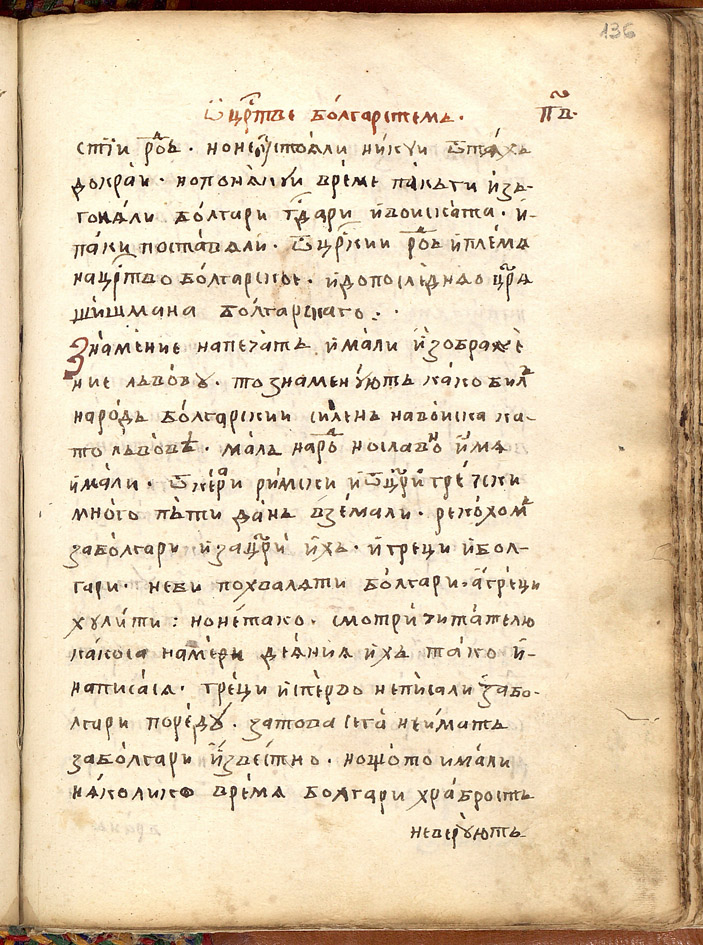 136
Ѿ црⷭ҇тве бо́лгарстемъ. п҃в.
стїи роⷣвъ. но не ᲂу҆стоѧ́ли ни́кꙋи ѿ тѧ́хъ
до кра́и. но по нѧ́кꙋи вре́ме па́къ ти и҆зъ-
гонѧ́ли бо́лгари гⷭ҇дари и҆ во́иската. и҆-
паки поста́вѧли. ѿ црⷭ҇кии роⷣвъ и҆ пле́мѧ
на црⷭ҇тво бо́лгарское. и҆ до послѣ́днѧго цр҃ѧ
ши́шмана бо́лгарскаго.
Зна́мение на печа́ть и҆ма́ли и҆зображе́-
ние льво́вꙋ. то знаменꙋ́ютъ ка́ко билъ
наро́дъ бо́лгарскии си́ленъ на во́иска ка-
то льво́вѣ. ма́лъ нароⷣ но сла́вно и҆́мѧ
и҆ма́ли. ѿ кесари ри́мски и҆ ѿ цр҃и гре́чски
мно́го пъ́ти да́нь взе́мали. реко́хомъ
за бо́лгари и҆ за цр҃и и҆́хъ. и҆ гре́ци и҆ бол-
гари. не би похвалѧ́ти бо́лгари. а҆ гре́ци
хꙋли́ти: но не́ тако. смотри́ чита́телю
ка́ко са наме́ри деѧ́нїѧ и҆́хъ та́ко и҆-
написа́сѧ. гре́ци и҆спе́рво не писали за бо-
лгари поре́дꙋ. за това сега не и́матъ
за бо́лгари и҆зве́стно. но що́то и҆ма́ли
нѧ́колико вре́мѧ бо́лгари хра́брость
неве́рꙋютъ